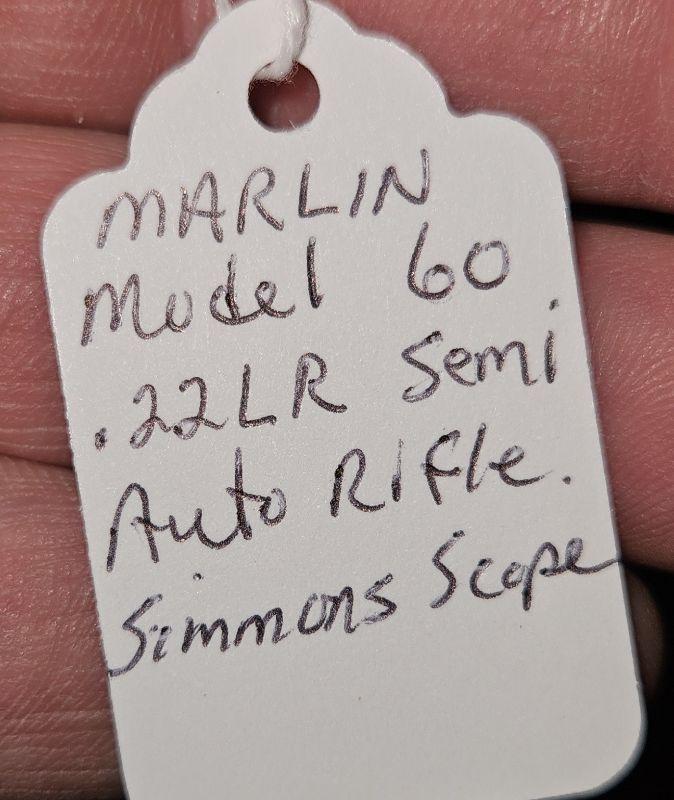 MARLIN
Model 60
.22LR Semi
Auto Rifle.
Simmons Scope